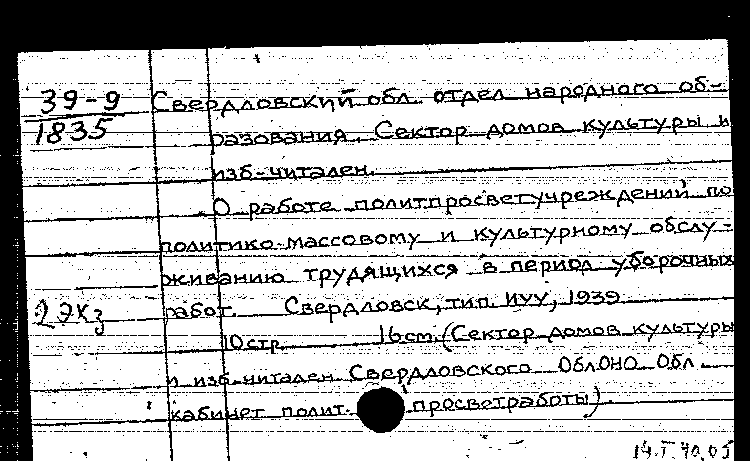 39-9
1835
Свердловский обл. отдел народного об-
разования. Сектор домов культуры и
изб-читален.
О работе политпросветучреждений по
политико-массовому и культурному обслу-
живанию трудящихся в период уборочных
работ. Свердловск, тип. ИУУ, 1939
2 экз
10 стр. 16 см. (Сектор домов культуры
и изб-читален Свердловского ОблОНО Обл.
кабинет полит. просветработы).